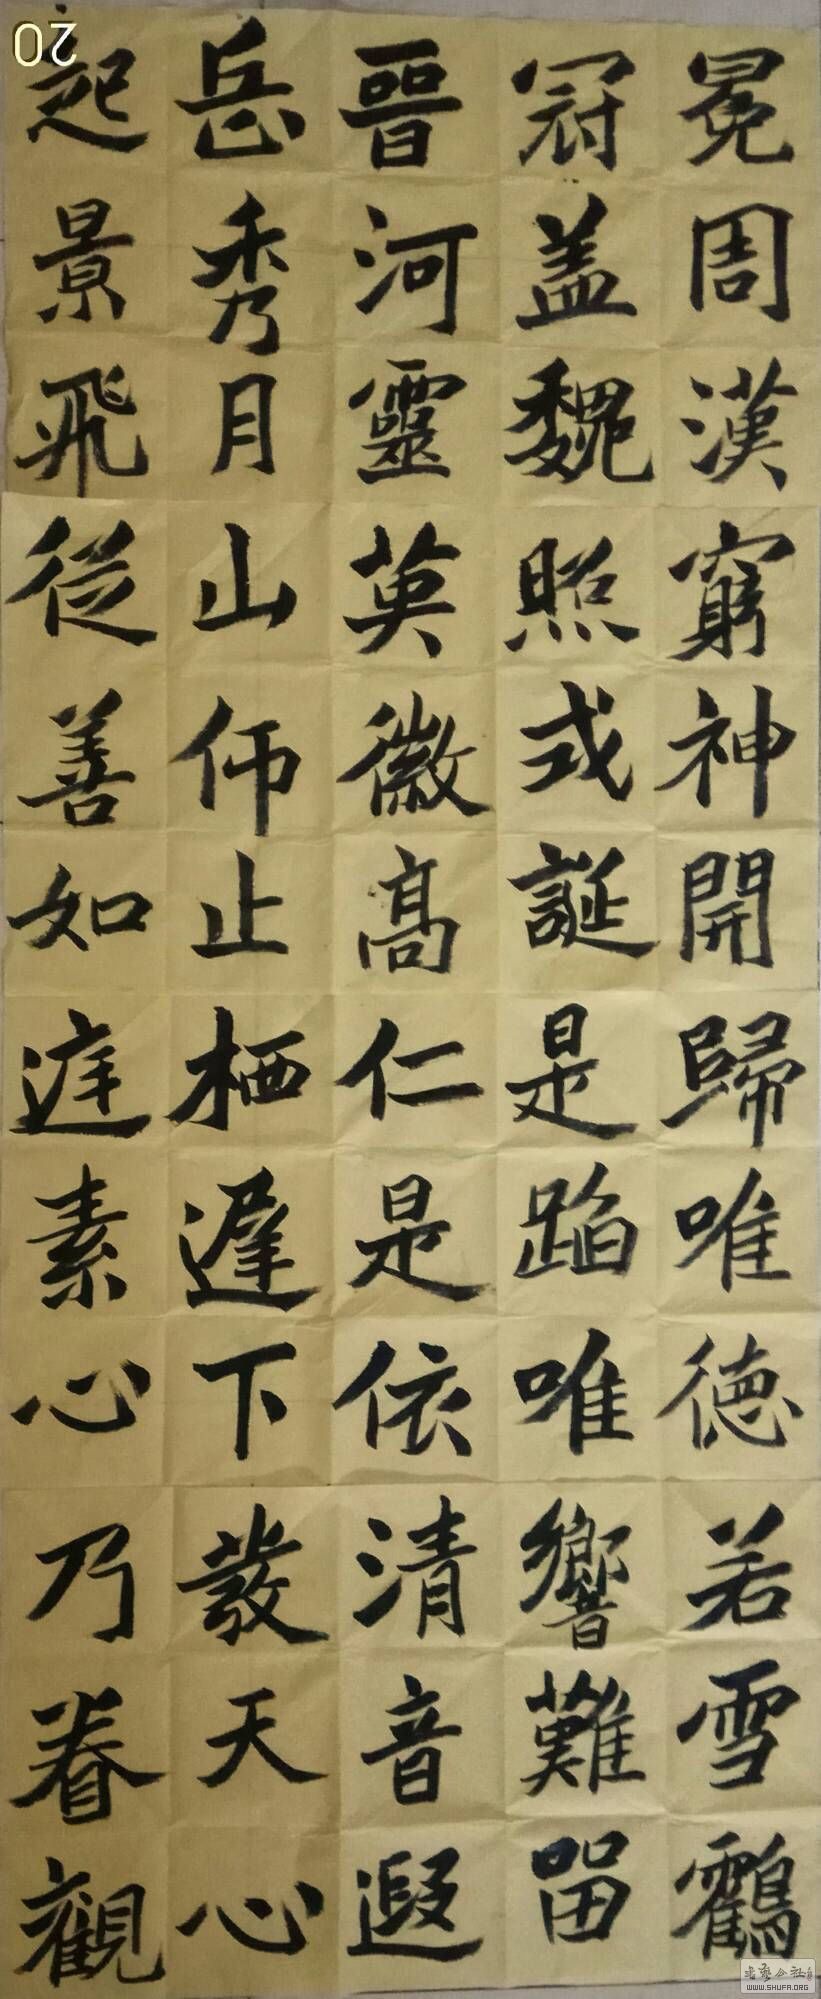 冕周漢窮神開歸唯德若雪鶴
冠盖魏照式誕是蹈唯響難留
晉河靈英徽高仁是依清音遐
岳秀月山仰止栖遲下發天心
起景飛從善如庭素心乃眷觀
20
书法公社
WWW.SHUFA.ORG